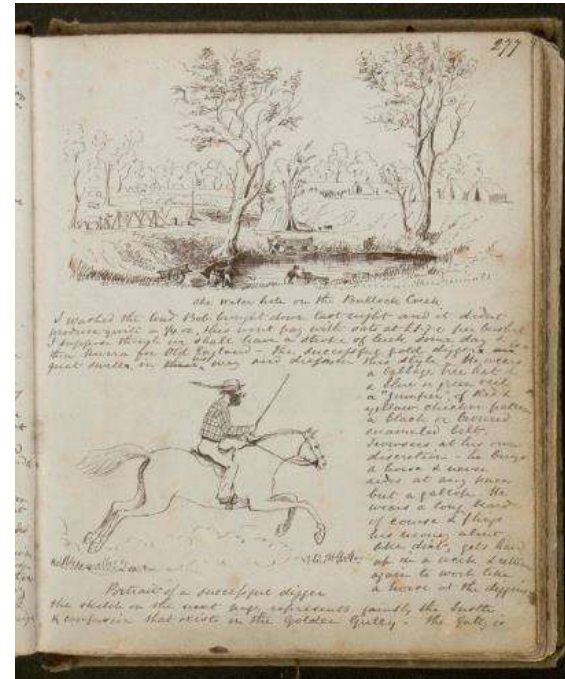 277
the water hole on the Bullock Creek
I washed the load Bob brought down last night and it didnt
produce quite a ¼ oz, this wont pay with oats at per bushel
I suppose though we shall have a stroke of luck some day &
then hurra for Old England - The successful gold digger is a
great swell, in his way and dresses in this style - He wears
a Cabbage tree hat
a blue or green veil
a "jumper" of Red &
yellow check pattern
a black or
enameled belt
trowsers at his own
discretion - he buys
a horse & never
rides at any pace
but a gallop. He
wears a long beard
of course & flings
his money about
like dirt, gets hard
up in a week & retires
again to work like
a horse at the diggings
Portrait of a successful digger
the sketch on the next page represents faintly the bustle
& confusion that exists in the Golden Gully - the Gully is